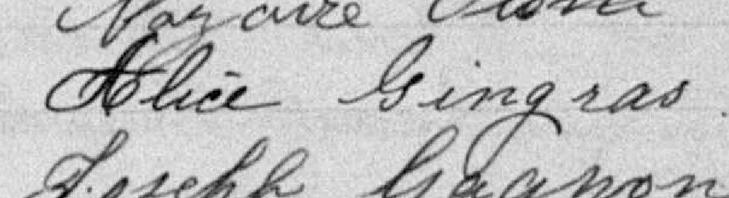 Nazaire
Alice Gingras
Joseph Gagnon